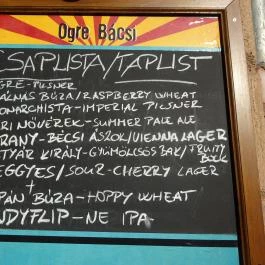 Ogre Bácsi
CSAPLISTA/TAPLIST
OGRE-PILSNER
MÁLNÁS BÚZA/RASPBERRY WHEAT
MONARCHISTA-IMPERIAL PILSNER
NŐVÉREK-SUMMER PALE ALE
ARANY-BÉCSI ÁSZOK/VIENNA LAGER
KIRÁLY-GYÜMÖLCSÖS BAK/FRUITY BOCK
MEGGYES/SOUR-CHERRY LAGER
+
BÚZA-HOPPY WHEAT
NDYFLIP-NE IPA